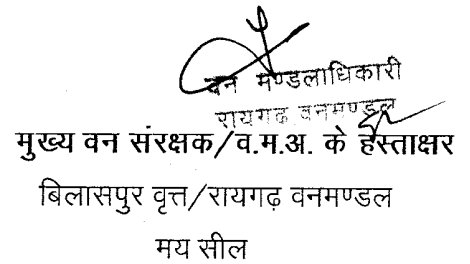 वन मण्डलाधिकारी
रायगढ़ वनमण्डल
मुख्य वन संरक्षक/व.म.अ. के हस्ताक्षर
बिलासपुर वृत्त/रायगढ़ वनमण्डल
मय सील